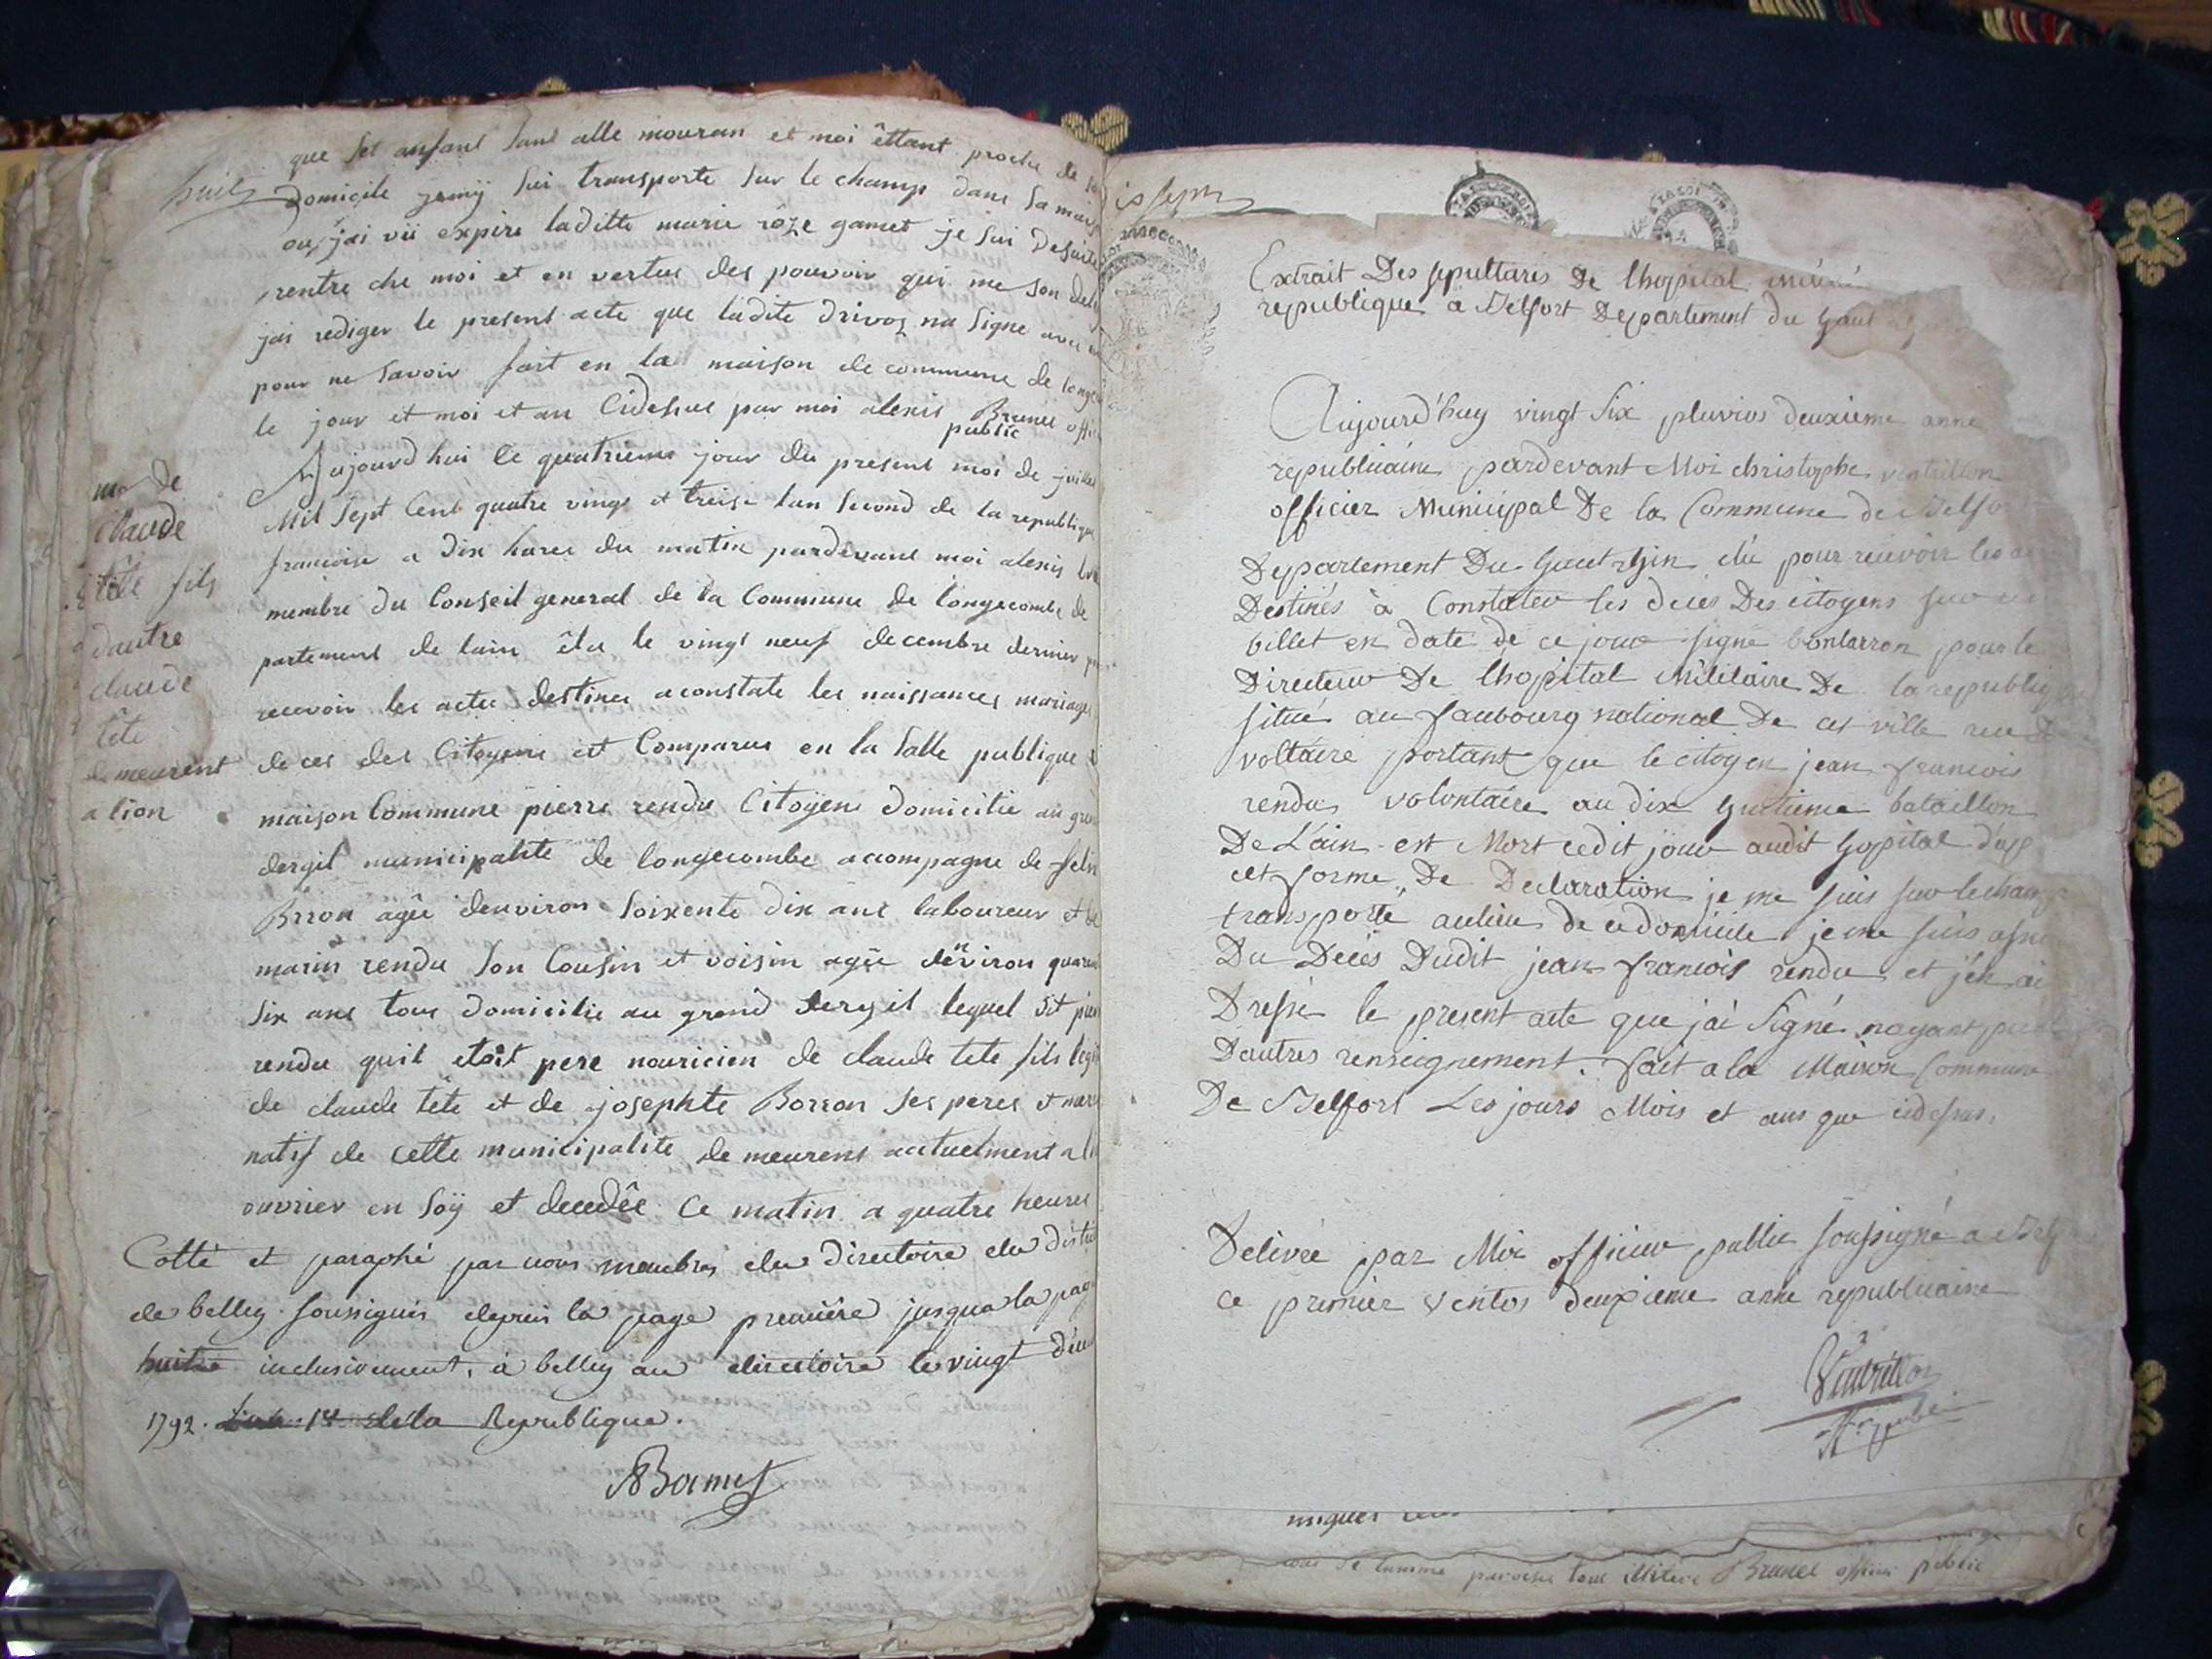 huit
que ses anfans sans alle mouran et moi êttant proche de
domicile jemij sui transporte sur le champ dans sa
ou jai vii expire laditte marie rôze gamet je sui desuite
rentre che moi et en vertus des pouvoir qui me son
jai rediger le present acte que ladite drivoz na signe avec
pour ne savoir fait en la maison de commune de
le jour et moi et an cidesus par moi alexis Brunel
public
Aujourd hui le quatrieme jour du present moi de
Mil sept cent quatre vingt et treise lan second de la republique
francoise a dix hures du matin pardevant moi alexis
membre du Conseil general de la Commune de longecombe de
partement de lain êlu le vingt neuf decembre dernier
recevoir les actes destines aconstate les naissances mariages
deces des Citoyens est Comparus en la salle publique
maison Commune pierre rendu Citoyens domicilie au
dergil municipalite de longecombe acompagne de
Brron agêe denviron soixente dix ans laboureur et
marin rendu son Cousin et voisin agêe dënviron
six ans tous domicilie au grand dergil lequel dit
rendu quil etoit pere nouricien de claude tete fils
de claude tête et de josephte Borron ses peres et
natif de cette municipalite de meurens actuelment a
ouvrier en soÿ et decedêe ce matin a quatre heures
mor de
claude
tête fils
dautre
claude
tête
de meurent
a lion
Cotté et paraphé par nous membres du Directoire du
de belley soussignés depuis la page premiere jusqua la
huitie inclusivement, à belley au directoire le vingt
1792. Lan 1er de la Republique.
Bamet
Extrait Des sepultures De lhopital
republique a Belfort Departement du haut
Aujourd'huy vingt six pluvios deuxieme anne
republicaine pardevant Moi christophe ventrillon
officier Municipal De la Commune de
Departement Du haut rhin élu pour recevoir les
Destinés à Constater les deces Des citoyens sur
billet en date de ce jour signé bontarron pour le
Directeur De lhopital Militaire De la
situé au faubourg national De cet ville rue
voltaire portant que le citoyen jean francois
rendu volontaire au dix huitieme bataillon
De L'ain est Mort cedit jour audit hopital
cet forme De Declaration je me suis sur le
transporté aulieu de ce domicile je me suis
Du Decés Dudit jean francois rendu et j'en ai
Dressé le present acte que j'ai signé nayant
Dautres renseignement. fait a la Maison Commune
De Belfort Les jours Mois et ans que cidessus.
Delivré par Moi officier public soussigné a
ce premier ventos deuxieme anne republicaine
Ventrillon
de lumini paroesse tous illitere Brunel officier public